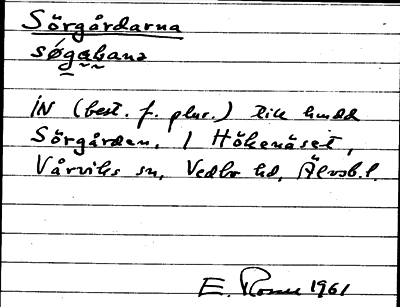 Sörgårdarna
søgạḅanɔ
IN (best. f. plur.) till hmdd
Sörgården, 1 Hökenäset,
Vårviks sn, Vedbo hd, Älvsb. l.
E. 1961